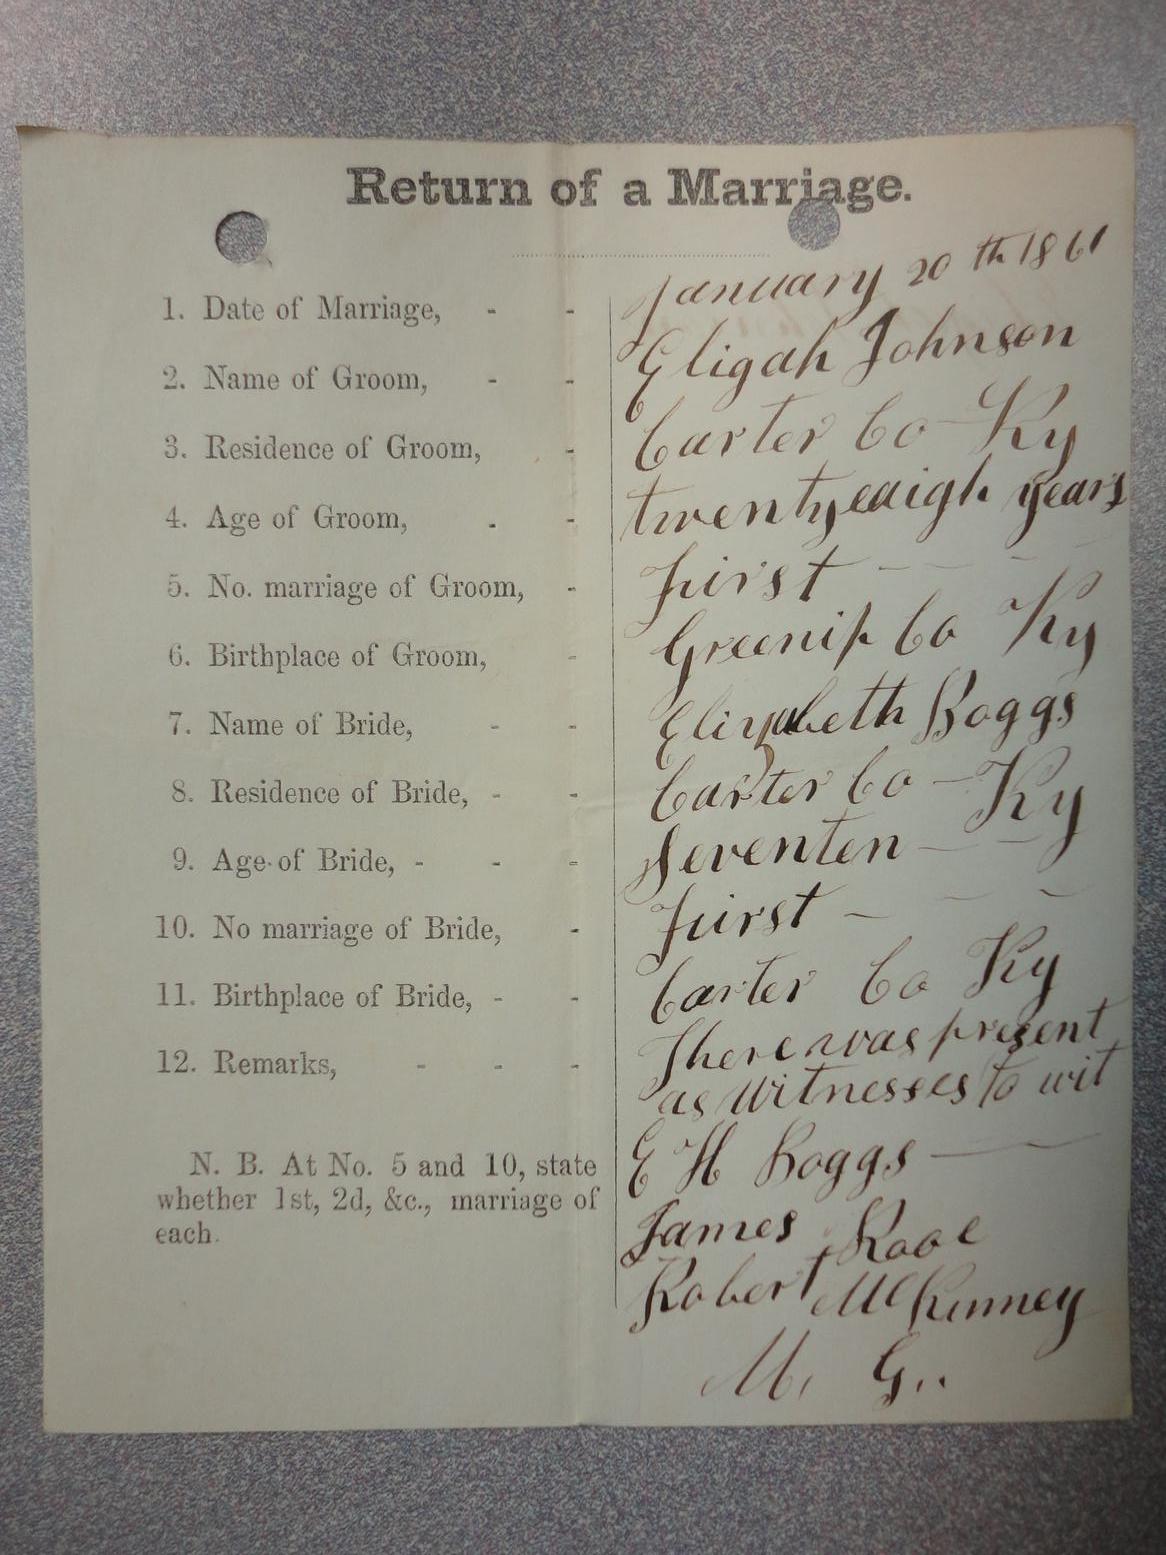 Return of a Marriage.
1. Date of Marriage, - - January 20th 1861
2. Name of Groom, - - Eligah Johnson
3. Residence of Groom, - Carter Co Ky
4. Age of Groom, - - twentyeaigh years
5. No. marriage of Groom, - First
6. Birthplace of Groom, - Greenip Co Ky
7. Name of Bride, - - Elizabeth Boggs
8. Residence of Bride, - - Carter Co - Ky
9. Age of Bride, - - - Seventen
10. No marriage of Bride, - First
11. Birthplace of Bride, - - Carter Co Ky
12. Remarks, - - - There was present
as witnesses to wit
N. B. At No. 5 and 10, state
whether 1st, 2d, &c., marriage of
each.
E H Boggs
James
Robert McKinney
M. G..